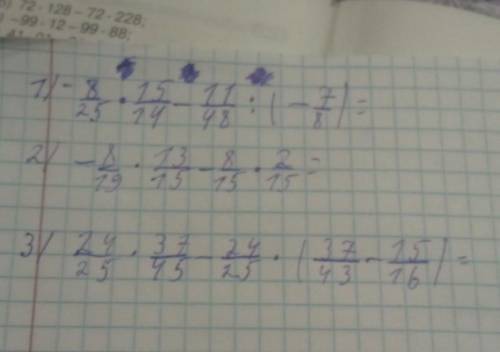 72 · 128 – 72 · 228;
–99 · 12 – 99 · 88;
1) - 8/25 · 15/14 - 11/48 : (- 7/8) =
2) - 8/19 · 13/15 - 8/15 · 2/15 =
3) 24/25 · 37/45 - 24/25 · (37/43 - 15/16) =